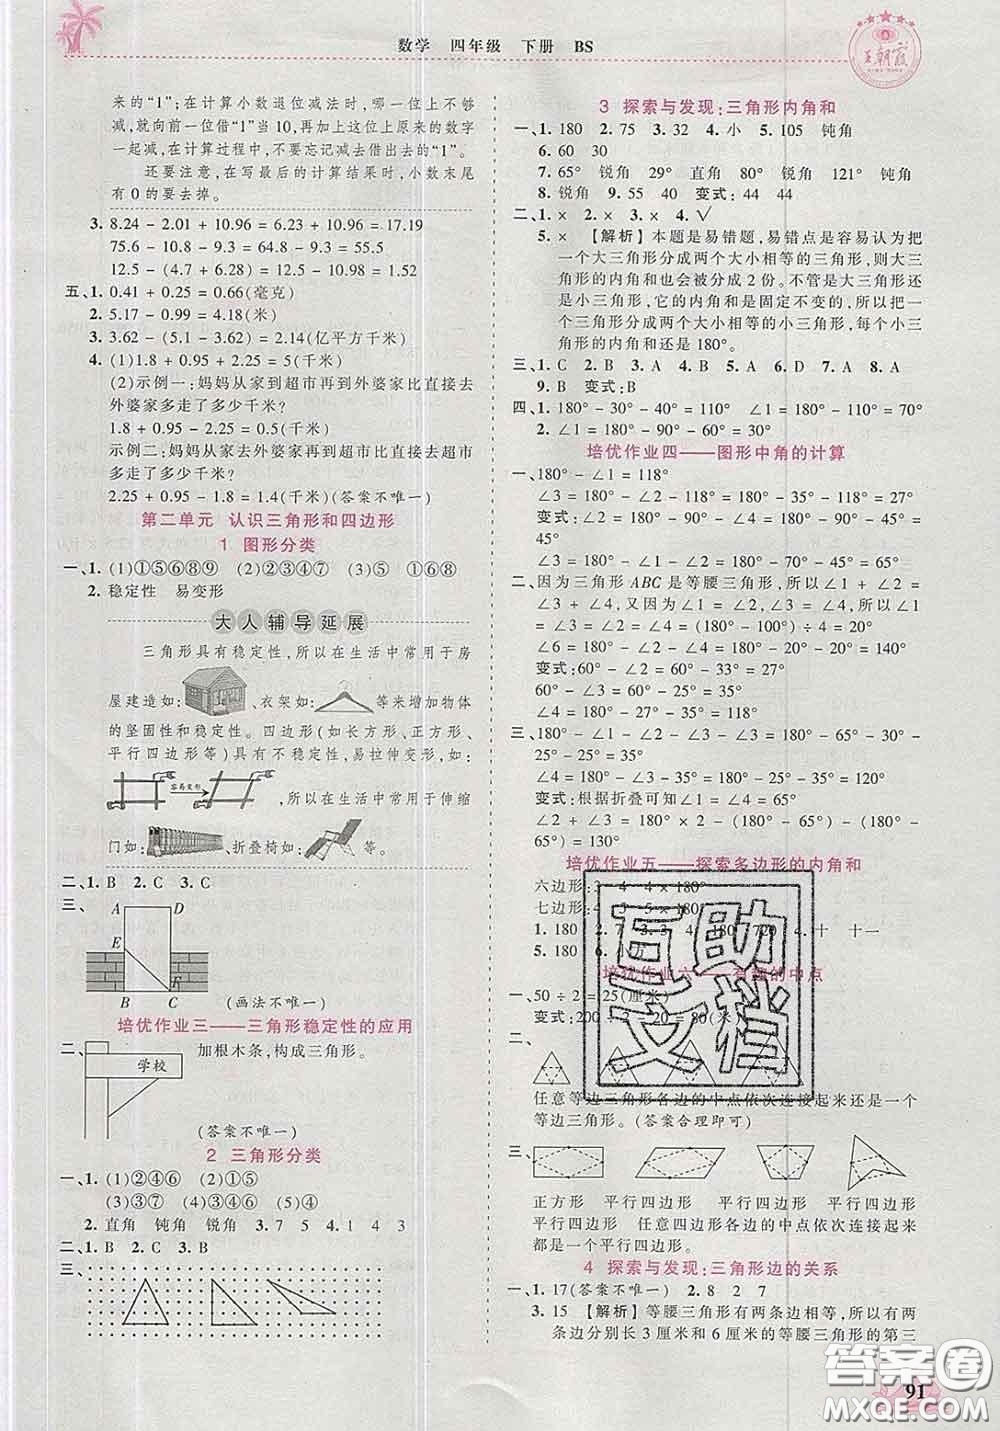 数学 四年级 下册 BS
王朝霞
来的“1”;在计算小数退位减法时,哪一位上不够
减,就向前一位借“1”当10,再加上这位上原来的数字
一起减,在计算过程中,不要忘记减去借出去的“1”。
还要注意,在写最后的计算结果时,小数末尾
有0的要去掉。
3. 8.24 - 2.01 + 10.96 = 6.23 + 10.96 = 17.19
75.6 - 10.8 - 9.45 = 64.8 - 9.45 = 55.35
12.5 - (4.7 + 6.28) = 12.5 - 10.98 = 1.52
五、1. 0.41 + 0.25 = 0.66(毫克)
2. 5.17 - 0.99 = 4.18(米)
3. 3.62 - (5.1 - 3.62) = 2.14(亿平方千米)
4. (1)1.8 + 0.95 + 2.25 = 5(千米)
(2)示例一:妈妈从家到超市再到外婆家比直接去
外婆家多走了多少千米?
1.8 + 0.95 - 2.25 = 0.5(千米)
示例二:妈妈从家去外婆家再去超市比直接去超
市多走了多少千米?
2.25 + 0.95 - 1.8 = 1.4(千米)(答案不唯一)
第二单元 认识三角形和四边形
1 图形分类
一、1. (1)①⑤⑥⑧⑨ (2)②③④⑦ (3)⑤ ①⑥⑧⑨
2. 稳定性 易变形
大人辅导延展
三角形具有稳定性,所以在生活中常用于房
屋建造如: 、衣架如: 等来增加物体
的坚固性和稳定性。四边形(如长方形、正方形、
平行四边形等)具有不稳定性,易拉伸变形,如:
容易变形
,所以在生活中常用于伸缩
门如: 、折叠椅如: 等。
二、1. B 2. C 3. C
三、 A D
E
F
B C (画法不唯一)
培优作业三——三角形稳定性的应用
二、 加根木条,构成三角形。
学校
(答案不唯一)
2 三角形分类
一、1. (1)②④⑥ (2)①⑤
(3)③⑦ (4)③④⑥ (5)①②⑤⑦
2. 直角 钝角 锐角 3. 7 5 4. 1 4 3
二、1. B 2. C 3. B
三、
3 探索与发现:三角形内角和
一、1. 180 2. 75 3. 32 4. 小 5. 105 钝角
6. 60 30
7. 65° 锐角 29° 直角 80° 锐角 121° 钝角
8. 锐角 9. 55 40 变式:44 44
二、1. × 2. × 3. × 4. √
5. × 【解析】本题是易错题,易错点是容易认为把
一个大三角形分成两个大小相等的三角形,则大三
角形的内角和也会被分成2份。不管是大三角形还
是小三角形,它的内角和是固定不变的,所以把一个
大三角形分成两个大小相等的小三角形,每个小三
角形的内角和还是180°。
三、1. C 2. B 3. B 4. A 5. A 6. D 7. A 8. A
9. B 变式:B
四、1. 180° - 30° - 40° = 110° ∠1 = 180° - 110° = 70°
2. ∠1 = 180° - 90° - 60° = 30°
培优作业四——图形中角的计算
一、180° - ∠1 = 118°
∠3 = 180° - ∠2 - 118° = 180° - 44° - 118° = 18°
变式:∠2 = 180° - 90° - ∠1 = 180° - 90° - 45° =
45°
∠3 = 180° - ∠2 - 67° = 180° - 45° - 67° = 68°
二、因为三角形ABC是等腰三角形,所以∠1 + ∠2 =
∠3 + ∠4,又因为∠1 = ∠2 = ∠3 = ∠4,所以∠1 =
∠2 = ∠3 = ∠4 = (180° - 100°) ÷ 2 ÷ 2 = 20°
∠6 = 180° - ∠2 - ∠4 = 180° - 20° - 20° = 140°
变式:60° - ∠2 = 60° - 25° = 35°
60° - ∠4 = 60° - 25° = 35°
∠3 = 180° - 35° - 35° = 110°
三、180° - ∠1 - ∠2 - ∠3 - ∠3 = 180° - 90° - 30° -
25° - 25° = 35°
∠4 = 180° - 90° - 35° = 55°
变式:根据折叠可知∠1 = ∠2 = 180°
∠2 + ∠3 = 180° × 2 - (180° - 65°) - (180° -
65°) = 130°
培优作业五——探索多边形的内角和
六边形:3 4 4 × 180°
七边形:4 5 5 × 180°
1. 180 2. 7 3. 3 4 180 720 4. 十 十一
5. 180 6.
培优作业六——有趣的中点
一、50 ÷ 2 = 25(厘米)
变式:
二、
任意等边三角形各边的中点依次连接起来还是一个
等边三角形。(答案合理即可)
三、
正方形 平行四边形 平行四边形 平行四边形
平行四边形 任意四边形各边的中点依次连接起来
都是一个平行四边形。
4 探索与发现:三角形边的关系
一、1. 17(答案不唯一) 2. 8 2 7
3. 15 【解析】等腰三角形有两条边相等,所以有两
条边分别长3厘米和6厘米的等腰三角形的第三
互助文档
91
答案卷
MXQE.COM